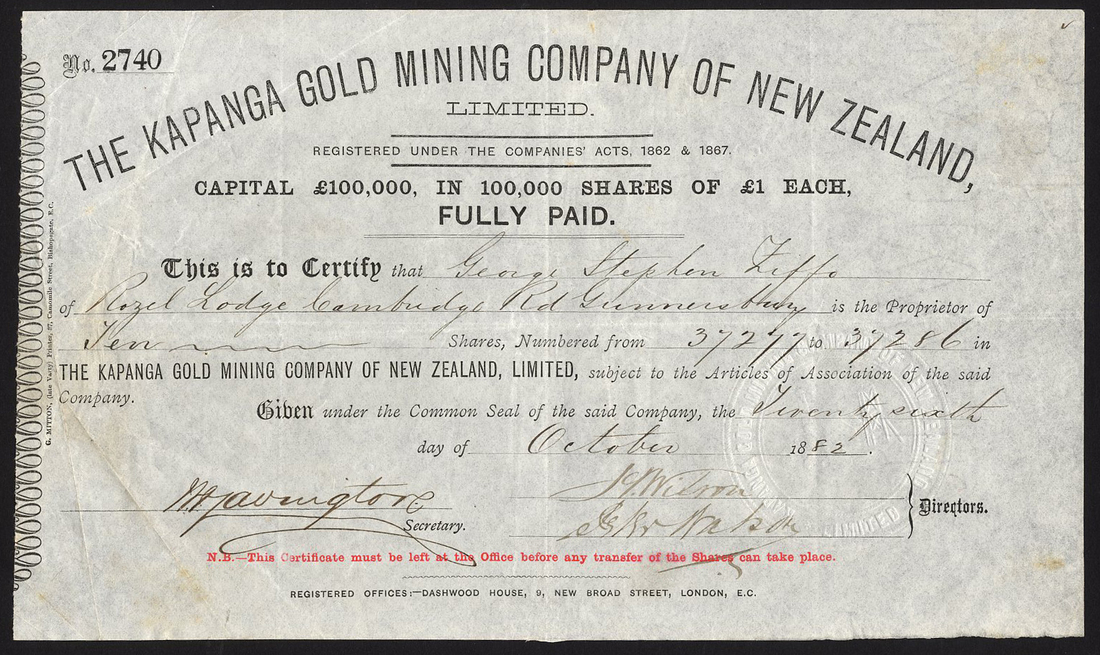 No. 2740
THE KAPANGA GOLD MINING COMPANY OF NEW ZEALAND,
LIMITED.
REGISTERED UNDER THE COMPANIES' ACTS, 1862 & 1867.
CAPITAL £100,000, IN 100,000 SHARES OF £1 EACH,
FULLY PAID.
This is to Certify that George Stephen Ziffo
of Rozel Lodge Cambridge Rd Gunnersbury is the Proprietor of
Ten Shares, Numbered from 37277 to 37286 in
THE KAPANGA GOLD MINING COMPANY OF NEW ZEALAND, LIMITED, subject to the Articles of Association of the said
Company.
Given under the Common Seal of the said Company, the Twenty sixth
day of October 1882.
Wilson
Directors.
Secretary.
N.B.—This Certificate must be left at the Office before any transfer of the Shares can take place.
REGISTERED OFFICES:—DASHWOOD HOUSE, 9, NEW BROAD STREET, LONDON, E.C.
G. MITTON, (late Varty) Printer, 37, Camomile Street, Bishopsgate, E.C.